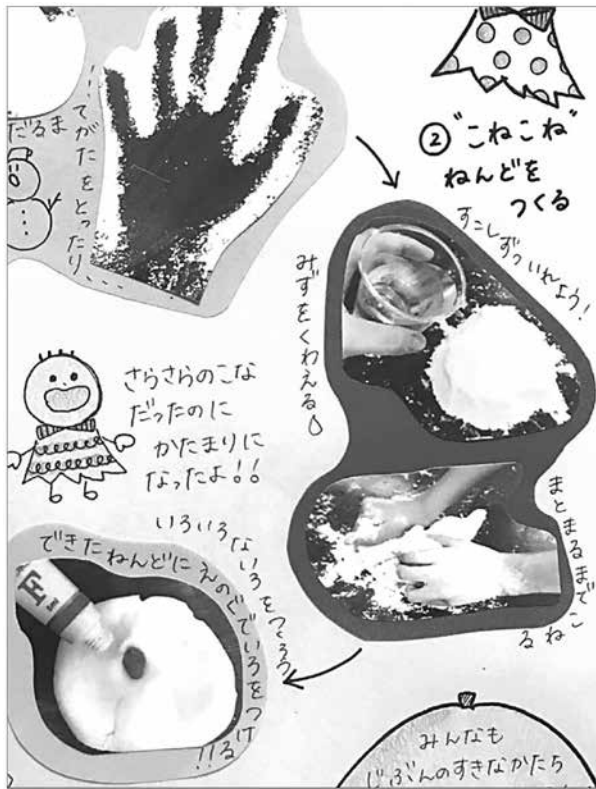 だるま
...てがたをとったり....
②"こねこね"
ねんどを
つくる
すこしずついれよう!
みずをくわえる
さらさらのこな
だったのに
かたまりに
なったよ!!
まとまるまでこねこね
る
いろいろないろをつくろう
できたねんどにえのぐでいろをつけ
る!!
みんなも
じぶんのすきなかたち